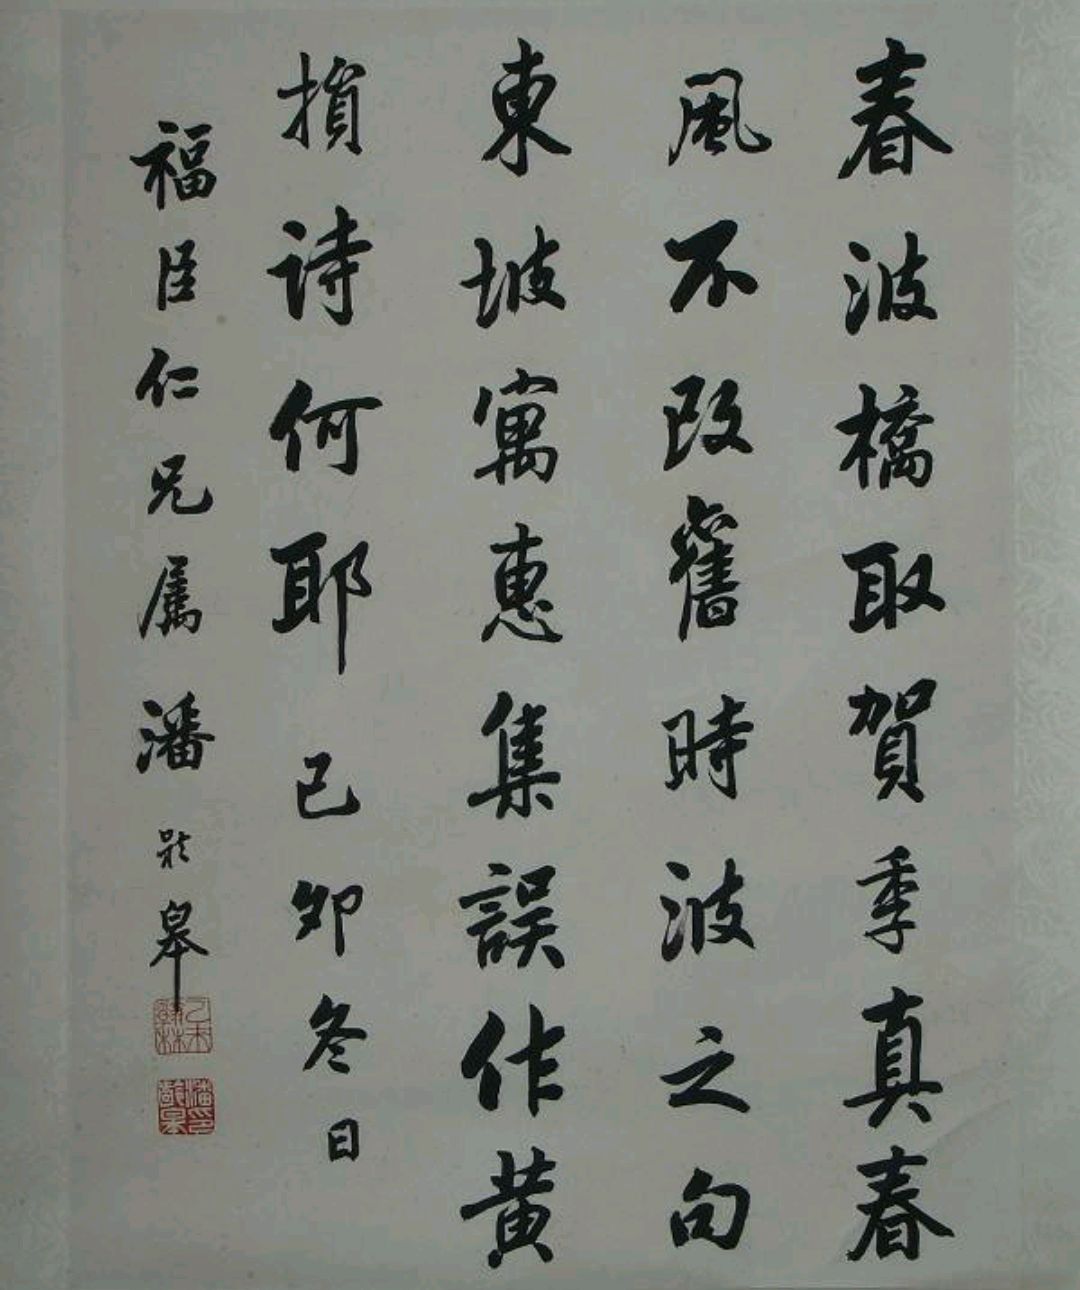 春波橋取賀季真春
風不改舊時波之句
東坡寓惠集誤作黄
損詩何耶己卯冬日
福臣仁兄属潘齡皋